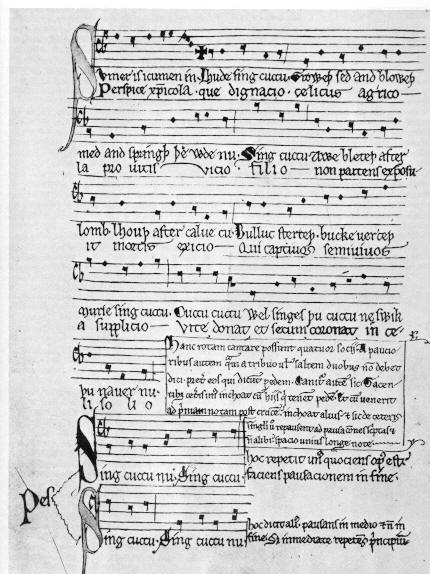 Sumer is icumen in. Lhude sing cuccu. Groweþ sed and bloweþ
Perspice xp̄icola. que dignacio. celicus agrico
med and springþ þe wde nu. Sing cuccu Awe bleteþ after
la pro uitis vicio. filio non parcens exposu
lomb. lhouþ after calue cu. Bulluc sterteþ. bucke uerteþ
it mortis exicio Qui captiuos semiuiuos
murie sing cuccu. Cuccu cuccu Wel singes þu cuccu ne swik
a supplicio Vite donat et secum coronat in ce
þu nauer nu.
li solio
Hanc rotam cantare possunt quatuor socij. A paucio
ribus autem quam a tribus ul' saltem duobus nō debet
dici. pret' eos qui dicūt pedem. Canit' autē sic. Tacen
tib; cet'is un' inchoat cū hijs qui tenent pedē. Et cū venerit
ad primam notam post crucē. inchoat alius. & sic de ceteris
singli u' repausent ad pausaciones scriptas &
nō alibi. spacio unius longe note.
Sing cuccu nu. Sing cuccu.
hoc repetit un' quociens op' est.
faciens pausacionem in fine.
Pes
Sing cuccu. Sing cuccu nu
hoc dicit ali'. pausans in medio & nō in
fine. Sʒ immediate repetēs principiū